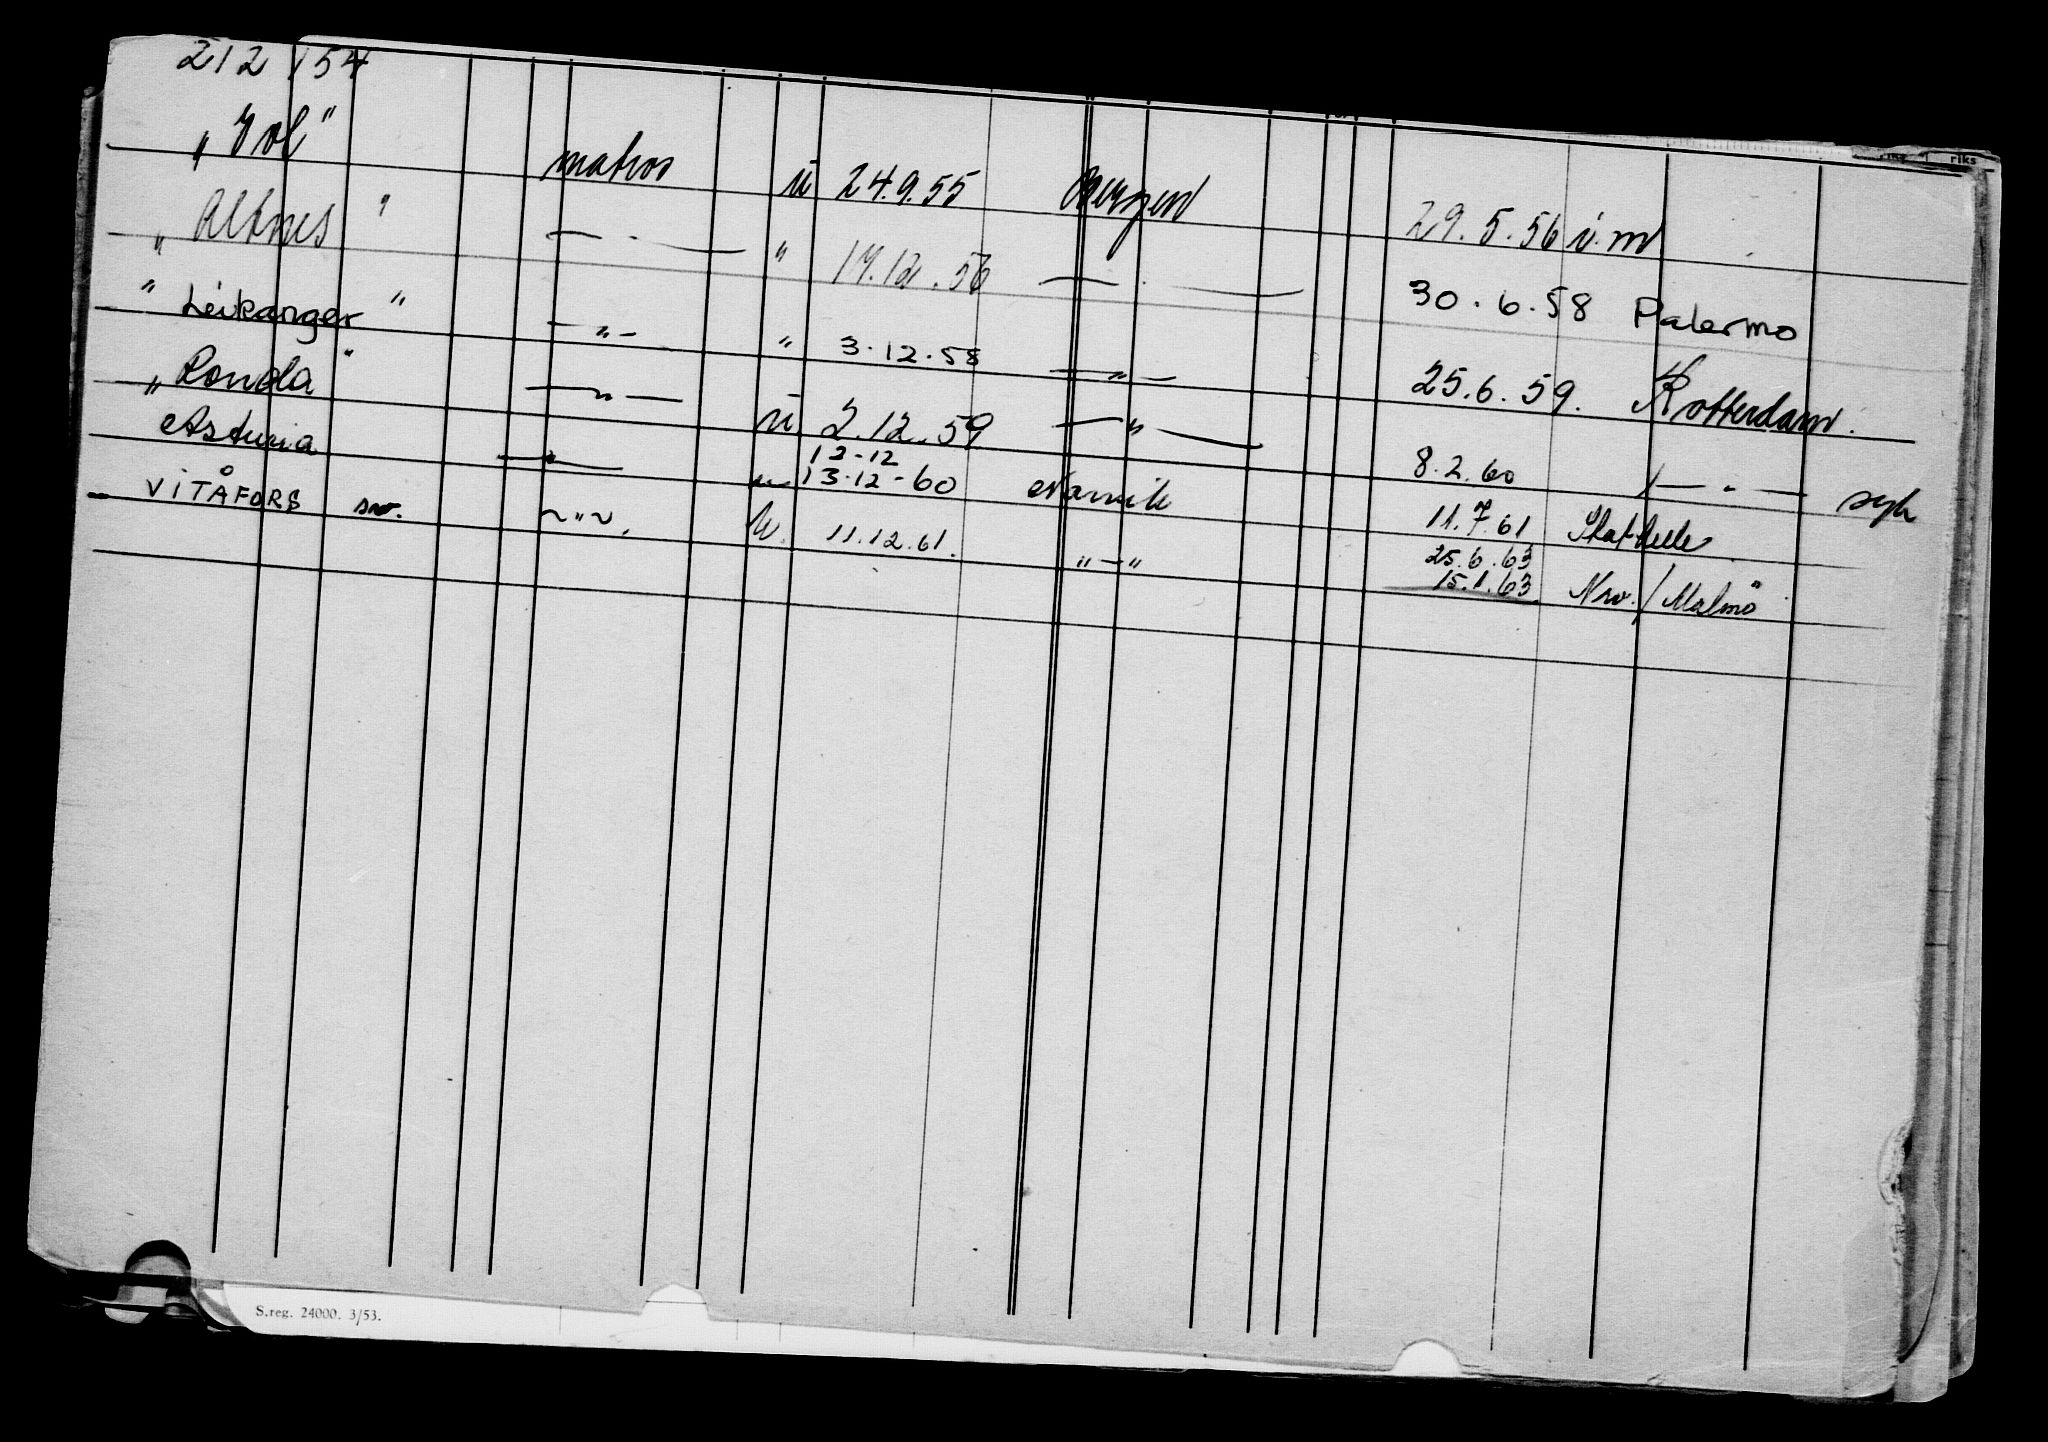 212154
„Vol" matros u 24.9.55 Bergen 29.5.56 i. m
„Altnes" — " — " 17.12.56 — " — 30.6.58 Palermo
"Leikanger" — " — " 3.12.58 — " — 25.6.59. Rotterdam.
„Ronda" — " — u 2.12.59 — " — 8.2.60 — " — syk
Asturia — " — 12-12 13-12-60 Narvik 11.7.61 Stathelle
VITÅFORS sv. — " — u. 11.12.61. " — " 25.6.63 15.1.63 Nrv. / Malmö
S.reg. 24000. 3/53.
riks